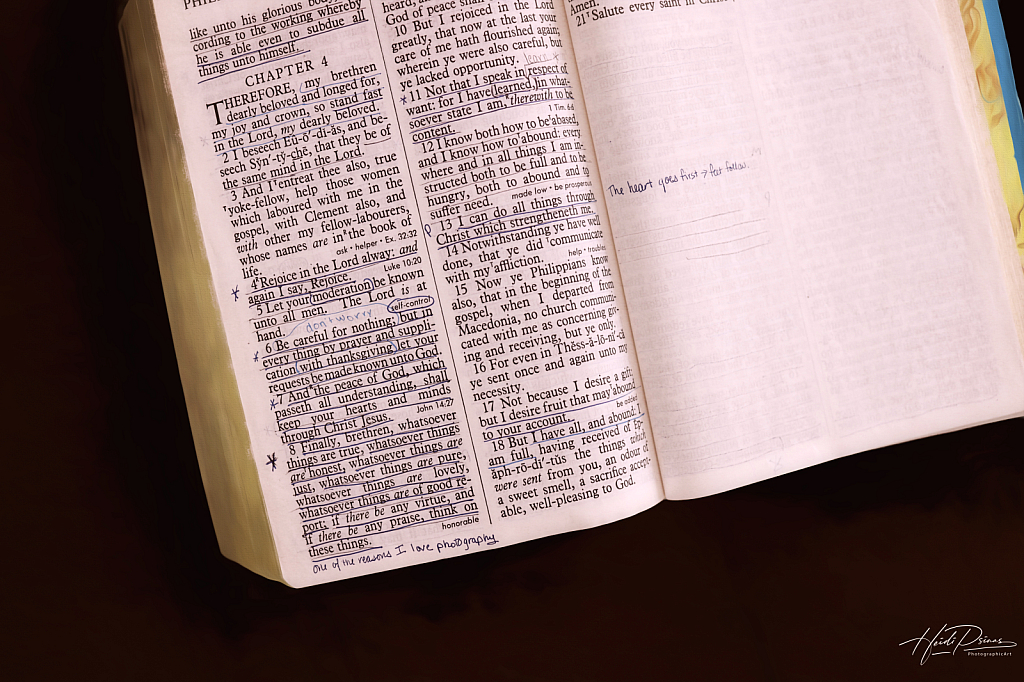 like unto his glorious
cording to the working whereby
he is able even to subdue all
things unto himself.
CHAPTER 4
THEREFORE, my brethren
dearly beloved and longed for,
my joy and crown, so stand fast
in the Lord, my dearly beloved.
2 I beseech Eū-ō´-dĭ-ăs, and be-
seech Sy̆n´-ty̆-chē, that they be of
the same mind in the Lord.
3 And I entreat thee also, true
yoke-fellow, help those women
which laboured with me in the
gospel, with Clement also, and
with other my fellow-labourers,
whose names are in the book of
life.
ask • helper • Ex. 32:32
4 Rejoice in the Lord alway: and
again I say, Rejoice.
Luke 10:20
5 Let your moderation be known
unto all men. The Lord is at
hand.
self-control
don't worry
6 Be careful for nothing; but in
every thing by prayer and suppli-
cation with thanksgiving let your
requests be made known unto God.
7 And the peace of God, which
passeth all understanding, shall
keep your hearts and minds
through Christ Jesus.
John 14:27
8 Finally, brethren, whatsoever
things are true, whatsoever things
are honest, whatsoever things are
just, whatsoever things are pure,
whatsoever things are lovely,
whatsoever things are of good re-
port; if there be any virtue, and
if there be any praise, think on
these things.
honorable
one of the reasons I love photography
God of peace shall
10 But I rejoiced in the Lord
greatly, that now at the last your
care of me hath flourished again;
wherein ye were also careful, but
ye lacked opportunity.
learn
11 Not that I speak in respect of
want: for I have learned, in what-
soever state I am, therewith to be
content.
1 Tim. 6:6
12 I know both how to be abased,
and I know how to abound: every
where and in all things I am in-
structed both to be full and to be
hungry, both to abound and to
suffer need.
made low • be prosperous
13 I can do all things through
Christ which strengtheneth me.
14 Notwithstanding ye have well
done, that ye did communicate
with my affliction.
help • troubles
15 Now ye Philippians know
also, that in the beginning of the
gospel, when I departed from
Macedonia, no church communi-
cated with me as concerning giv-
ing and receiving, but ye only.
16 For even in Thĕss-ă-lō-nī´-că
ye sent once and again unto my
necessity.
17 Not because I desire a gift:
but I desire fruit that may abound
to your account.
be added
18 But I have all, and abound: I
am full, having received of Ĕp-
ăph-rō-dī´-tŭs the things which
were sent from you, an odour of
a sweet smell, a sacrifice accept-
able, well-pleasing to God.
Amen.
21 Salute every saint in
The heart goes first → feet follow.
Heidi Psinas
PhotographicArt